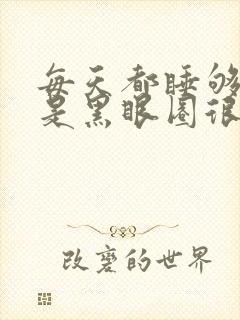 每天都睡够
是黑眼圈很
改变的世界